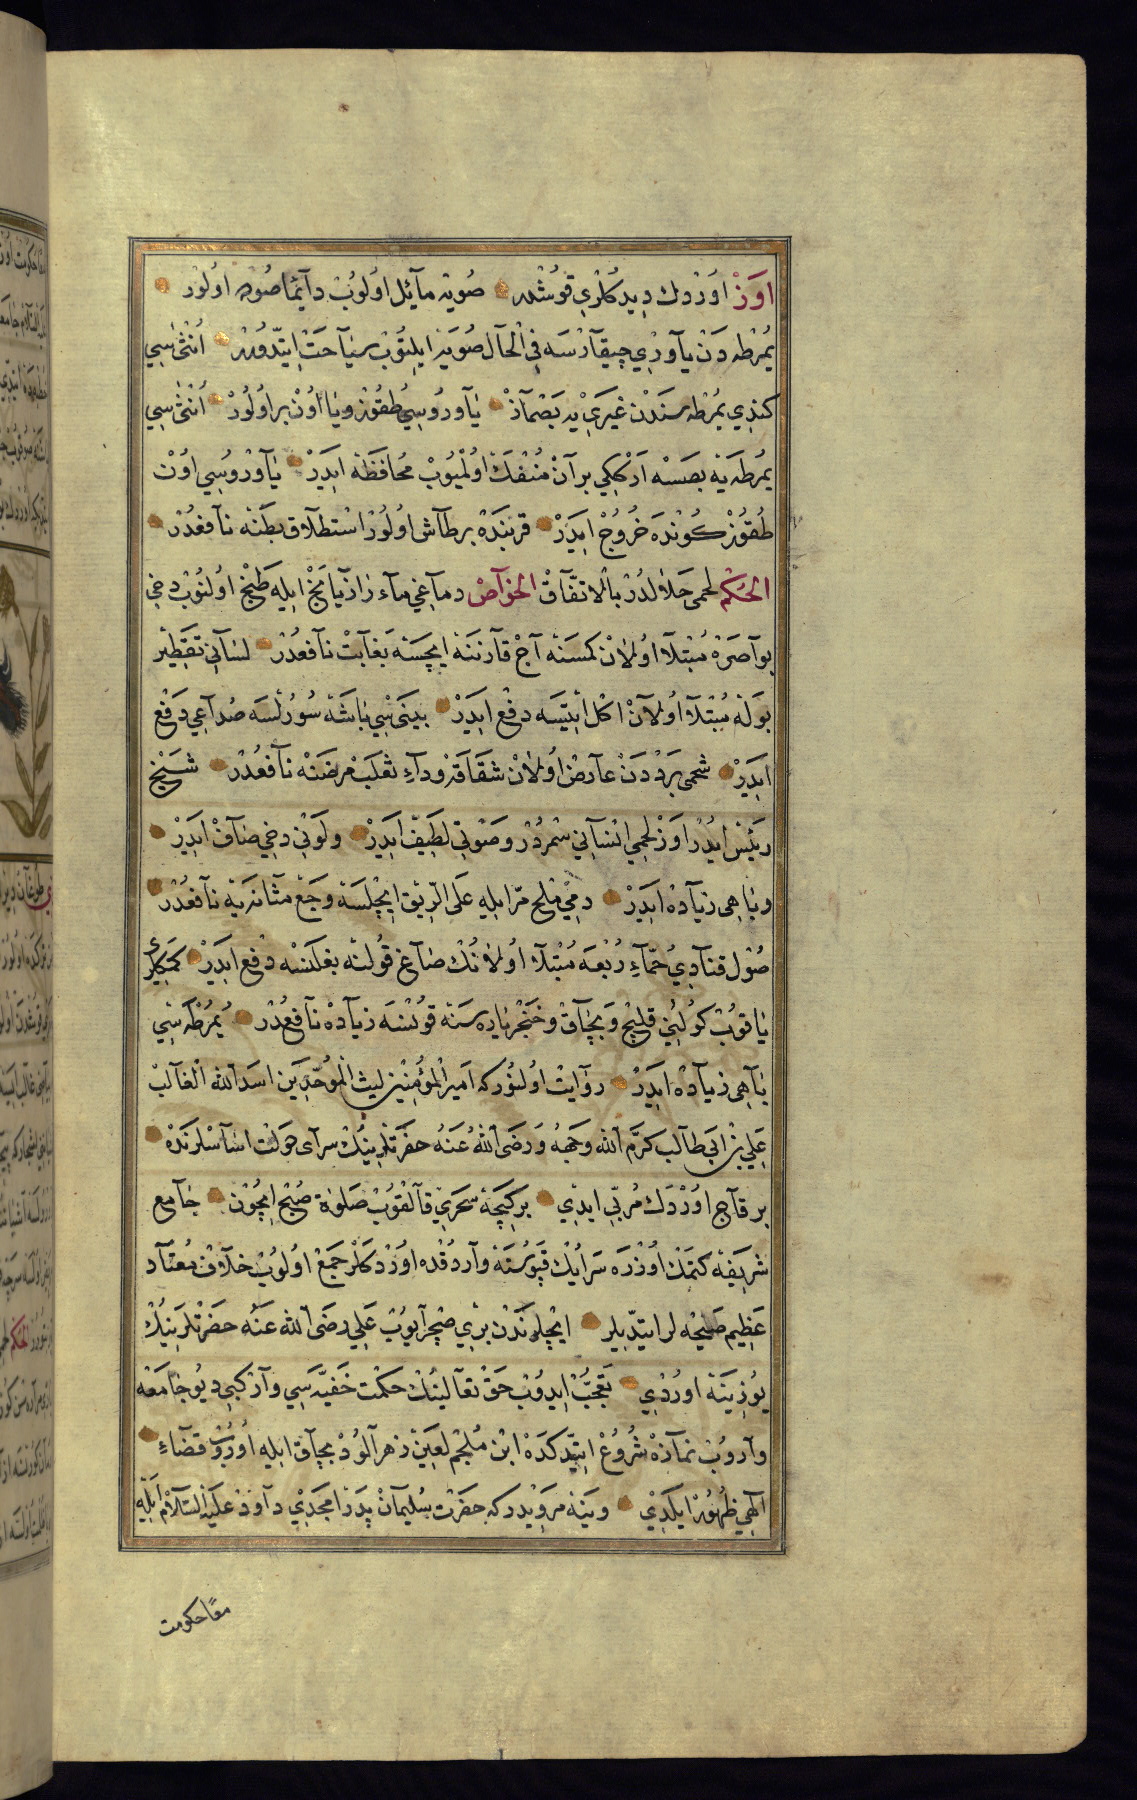 اوز اوردك ديدكلري قوشدر صويه مآئل اولوب دآئما صوده اولور
يمرطه دن يآوري چيقآرسه في الحآل صويه ايليتوب سيآحت ايتديرر أنثىٰ سي
كندي يمرطه سندن غيري يه بصمآز يآوروسي طقوز ويا اون بر اولور أنثىٰ سي
يمرطه يه بصسه اركگي بر آن منفك اولميوب محافظه ايدر يآوروسي اون
طقوز كونده خروج ايدر قربنده بر طآش اولور استطلاق بطنه نآفعدر
الحكم لحمى حلالدر بالاتفآق الخوآص دمآغي مآء رازيآنج ايله طبخ اولنوب دخي
بوآصره مبتلآ اولان كمسنه آج قآرننه ايچسه بغآيت نآفعدر لسآني تقطير
بوله مبتلآ اولآن اكل ايتسه دفع ايدر بيني سي باشه سورلسه صدآعي دفع
ايدر شحمى برددن عآرض اولان شقاقه ودآء ثعلب مرضنه نآفعدر شيخ
رئيس ايدر اوز لحمي انسآني سمردر وصوتي لطيف ايدر ولوني دخي صآف ايدر
وباهى زيآده ايدر دمي ملح مرّ ايله على الريق ايچلسه وجع مثانه يه نآفعدر
صول قنآدي حمآء ربعه مبتلا اولانك صآغ قولنه بغلنسه دفع ايدر كميكلري
ياقوب كولني قليچ وبچآق وخنجر ياره سنه قونسه زيآده نآفعدر يمرطه سي
بآهى زيآده ايدر روآيت اولنور كه امير المؤمنين ليث الموحدين اسد الله الغآلب
علي بن ابي طآلب كرّم الله وجهه ورضى الله عنه حضرتلرينك سرآى حولت اسآسلرنده
بر قآچ اوردك مربّي ايدي بر كيچه سحري قآلقوب صلوة صبح ايچون جآمع
شريفه كتمك اوزره سرايك قپوسنه وآردقده اوردكلر جمع اولوب خلآف معتآد
عظيم صيحه لر ايتديلر ايچلرندن بري صچرآيوب علي رضى الله عنه حضرتلرينك
يوزينه اوردي تعجّب ايدوب حق تعآلينك حكمت خفيّه سي وآر كبي ديو جآمعه
وآروب نمآزه شروع ايتدكده ابن ملجم لعين زهر آلود بچآق ايله اوروب قضآء
الهي ظهور ايلدي وينه مرويدر كه حضرت سليمآن پدر امجدي دآود عليه السلآم ايله
معًا حكومت